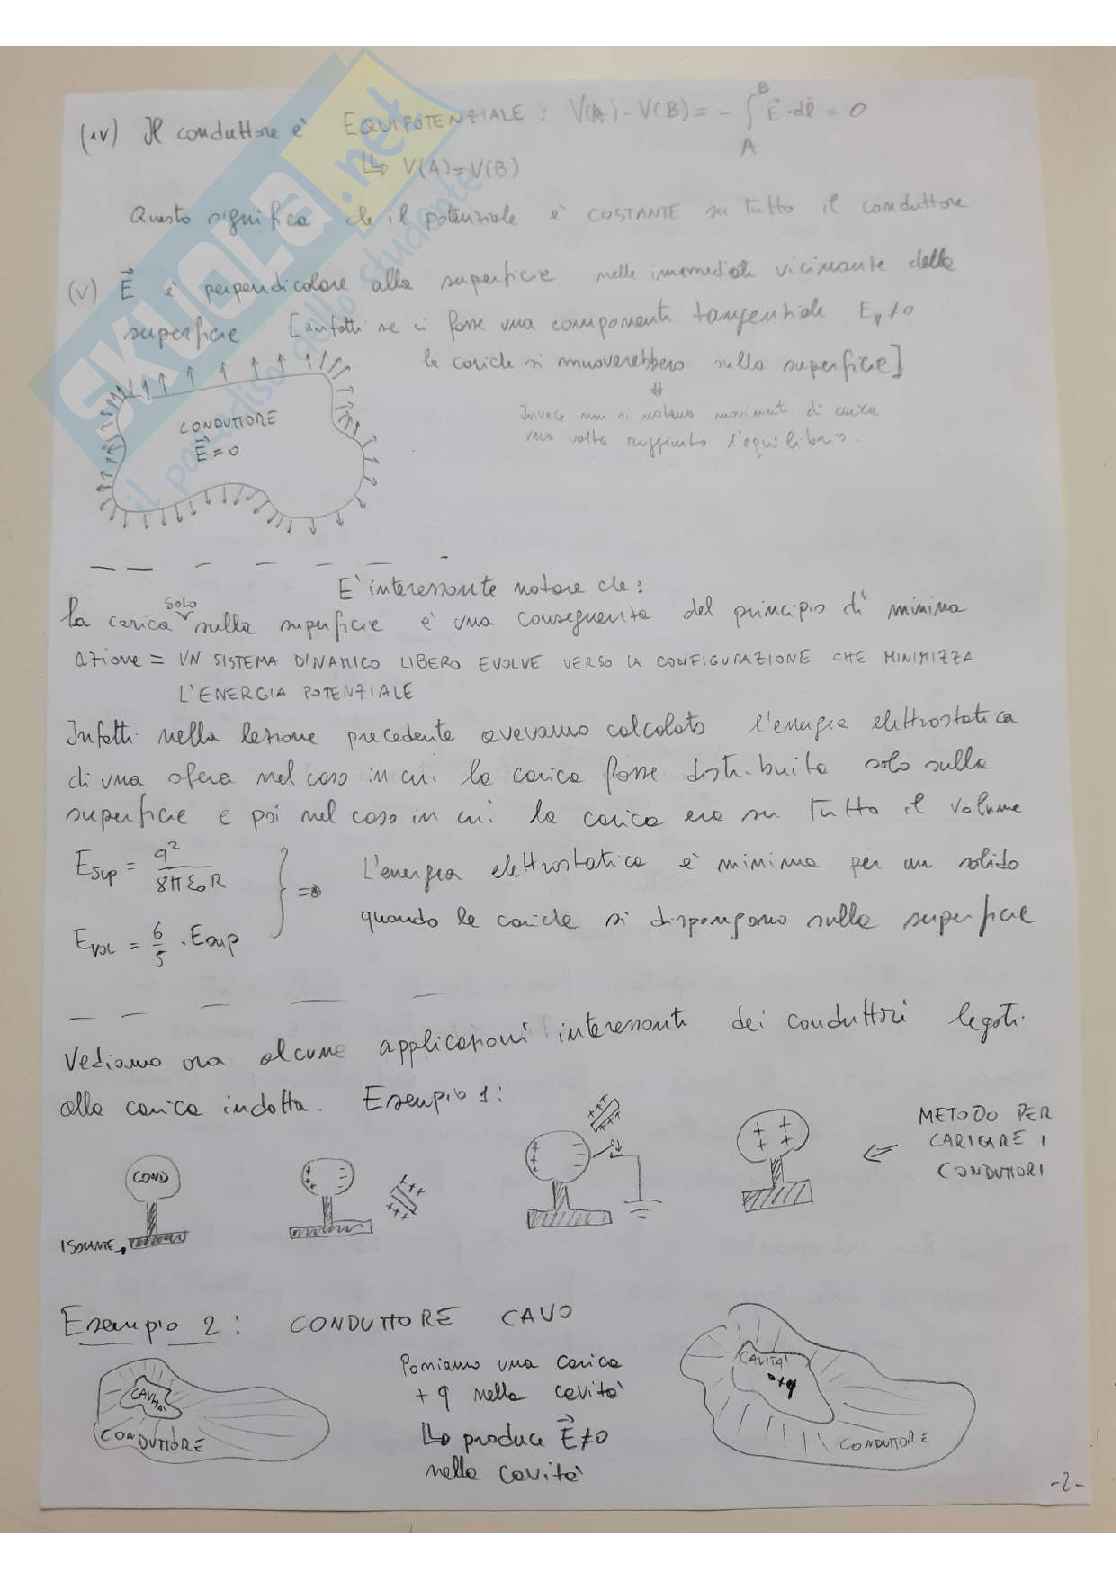 (iv) Il conduttore è EQUIPOTENZIALE : V(A)-V(B) = - ∫_A^B E⃗·dl⃗ = 0
↳ V(A)=V(B)
Questo significa che il potenziale è COSTANTE su tutto il conduttore
(v) E⃗ è perpendicolare alla superficie nelle immediate vicinanze della
superficie [infatti se ci fosse una componente tangenziale E ≠ 0
le cariche si muoverebbero sulla superficie]
Invece non si notano movimenti di carica
una volta raggiunto l'equilibrio.
CONDUTTORE
E⃗ = 0
E' interessante notare che:
La carica solo sulla superficie è una conseguenza del principio di minima
azione = UN SISTEMA DINAMICO LIBERO EVOLVE VERSO LA CONFIGURAZIONE CHE MINIMIZZA
L'ENERGIA POTENZIALE
Infatti nella lezione precedente avevamo calcolato l'energia elettrostatica
di una sfera nel caso in cui la carica fosse distribuita solo sulla
superficie e poi nel caso in cui la carica era su tutto il volume
E_sup = q²/8πε₀R
E_vol = 6/5 · E_sup
=> L'energia elettrostatica è minima per un solido
quando le cariche si dispongono sulla superficie
Vediamo ora alcune applicazioni interessanti dei conduttori legati
alla carica indotta. Esempio 1:
COND
ISOLANTE
METODO PER
CARICARE I
CONDUTTORI
Esempio 2: CONDUTTORE CAVO
CAVITÀ
CONDUTTORE
Poniamo una carica
+q nella cavità
↳ produce E⃗≠0
nella cavità
CAVITA'
+q
CONDUTTORE
-2-
SKUOLA.net
il paradiso dello studente